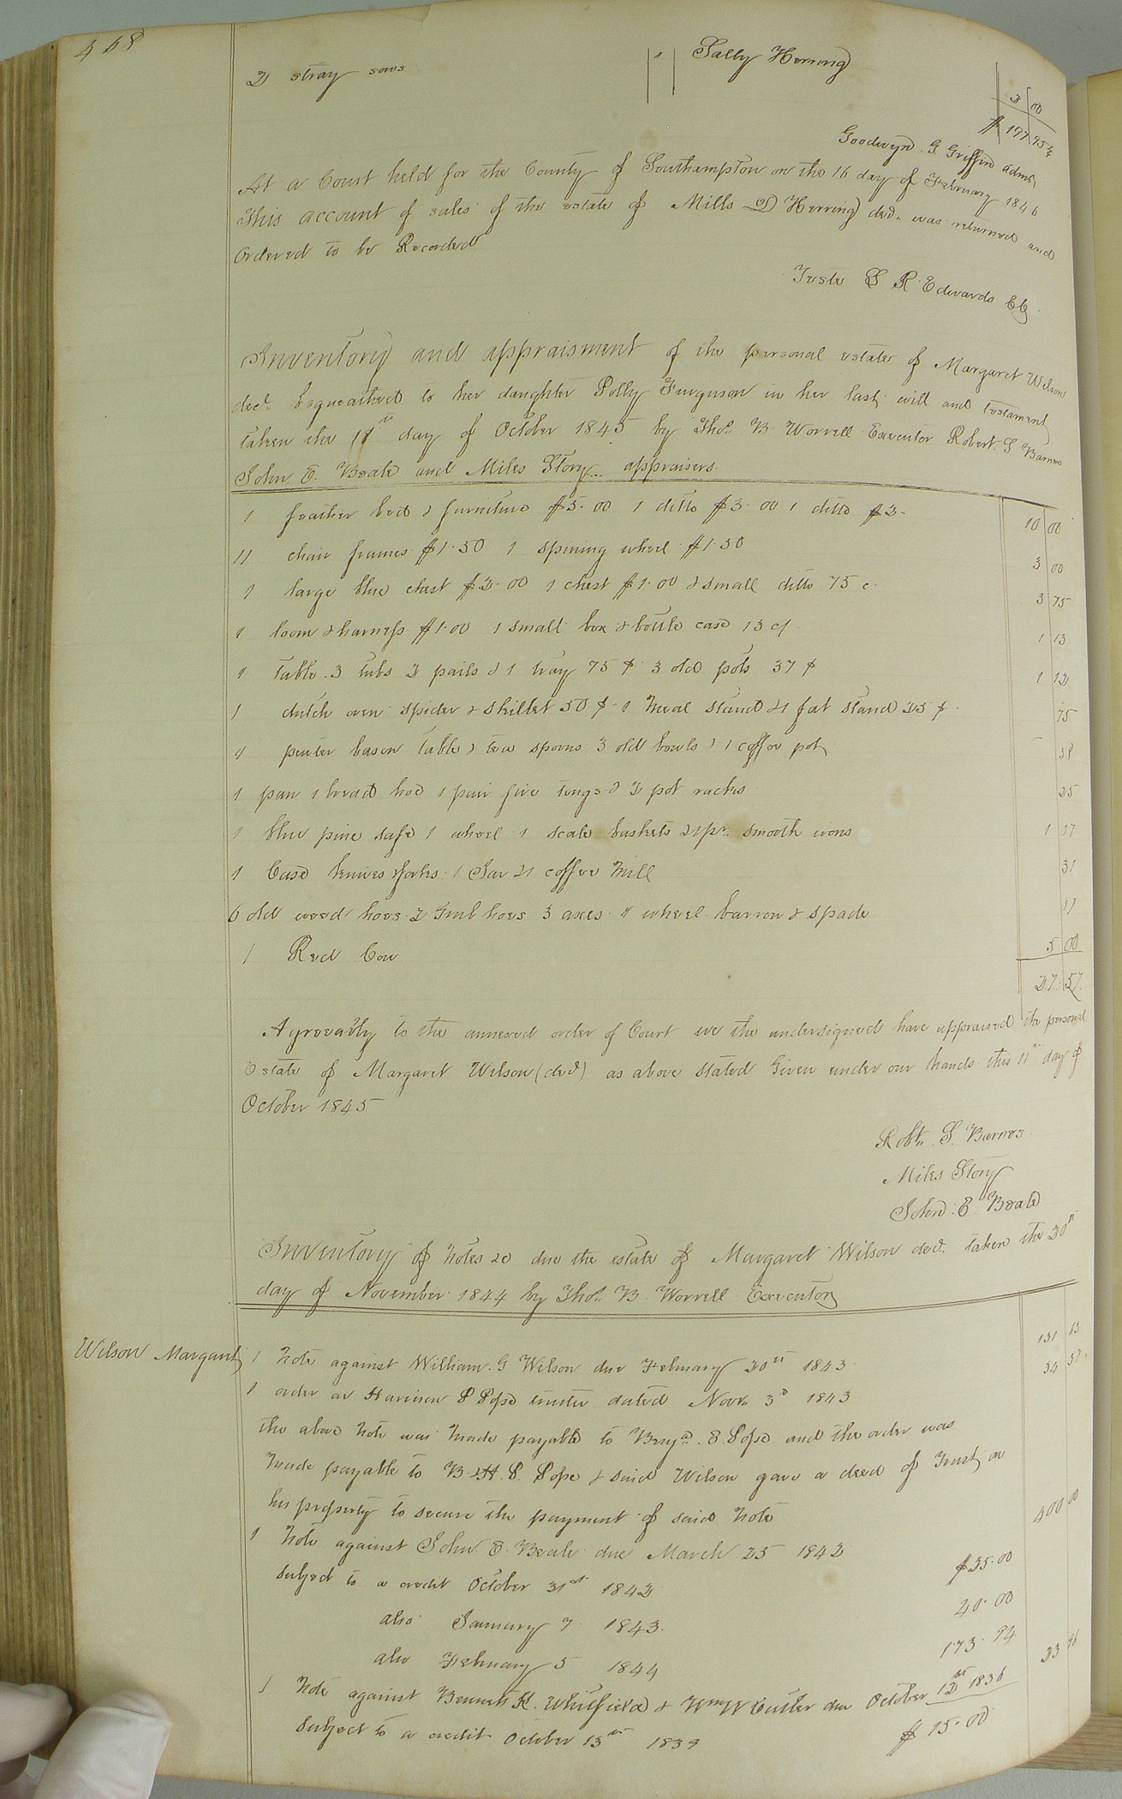 468
2 stray sows " Sally Herring 3 00
$ 197 95½
Goodwyn G Griffin admr
At a Court held for the County of Southampton on the 16 day of February 1846
This account of sales of the estate of Mills D Herring decd. was returned and
Ordered to be Recorded
Teste L R Edwards Clk
Inventory and appraisment of the personal estate of Margaret Wilson
decd. bequeathed to her daughter Polly Ferguson in her last will and testament
taken the 11th day of October 1845 by Thos. B Worrell Executor Robert S Barnes
John E. Beale and Miles Story appraisers
1 feather bed & furniture $5.00 1 ditto $3.00 1 ditto $2- 10 00
11 chair frames $1.50 1 spining wheel $1.50 3 00
1 large blue chest $2.00 1 chest $1.00 & small ditto 75 c. 3 75
1 loom & harness $1.00 1 small box & bottle case 13 c 1 13
1 table 3 tubs 2 pails & 1 tray 75 ¢ 3 old pots 37 ¢ 1 12
1 dutch oven spider & skillet 50 ¢ 1 meal stand & 1 fat stand 25 ¢ 75
1 pewter bason table & tea spoons 3 old bowls & 1 coffee pot 58
1 pan 1 bread hoe 1 pair fire tongs & 2 pot racks 25
1 blue pine safe 1 wheel 1 scale baskets & 1 pr. smooth irons 1 17
1 Case knives & forks 1 Jar & 1 coffee mill 31
6 old weed hoes 2 grub hoes 3 axes 1 wheel barrow & spade
1 Red Cow 5 00
27 57
Agreeably to the annexed order of Court we the undersigned have appraised the personal
Estate of Margaret Wilson (decd) as above stated Given under our hands this 11th day of
October 1845
Robt. S. Barnes
Miles Story
John E Beale
Inventory of notes &c due the estate of Margaret Wilson decd. taken the 30th
day of November 1844 by Thos. B Worrell Executor
Wilson Margaret 1 note against William G Wilson due February 20th 1843 131 13
1 order on Harrison P Pope trustee dated Novr. 3d 1843 54 57
the above note was made payable to Benjn. E. Pope and the order was
made payable to B & H P. Pope & said Wilson gave a deed of Trust on
his property to secure the payment of said note
1 note against John E Beale due March 25 1842 400 00
subject to a credit October 31st 1842 $25.00
also January 7 1843 40.00
also February 5 1844 173.94
1 note against Bennett K. Whitfield & Wm W Cutler due October 12th 1836 23 96
Subject to a credit October 13th 1839 $ 15.00